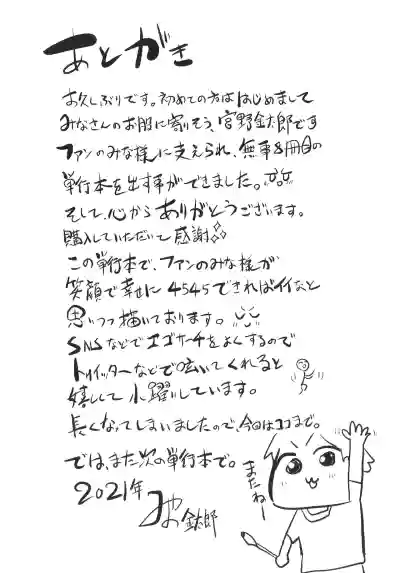 あとがき
お久しぶりです。初めての方ははじめまして
みなさんのお股に寄りそう、宮野金太郎です
ファンのみな様に支えられ、無事8冊目の
単行本を出す事ができました。
そして、心からありがとうございます。
購入していただいて感謝
この単行本で、ファンのみな様が
笑顔で幸せに4545できればイイなと
思いつつ描いております。
SNSなどでエゴサーチをよくするので
トゥイッターなどで呟いてくれると
嬉しくて小躍りしています。
長くなってしまいましたので、今回はココまで。
では、また次の単行本で。
2021年
みや金太郎
またねー